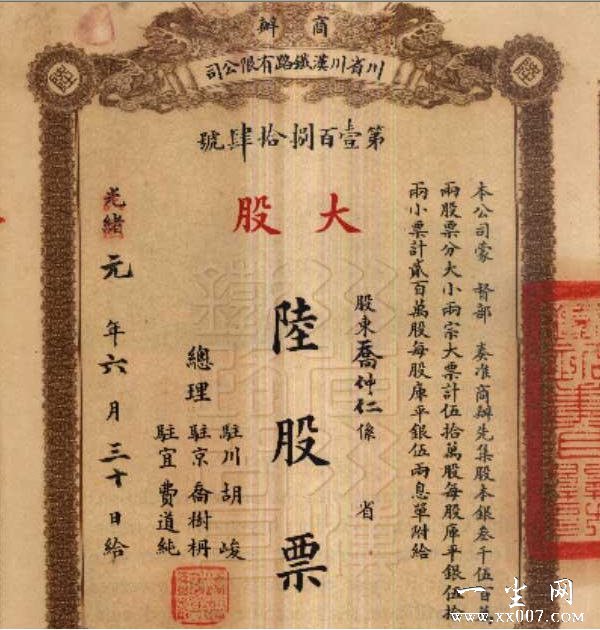 商辦
川省川漢鐵路有限公司
陸
陸
第壹百捌拾肆號
大股
本公司蒙 督部 奏准商辦先集股本銀叁千伍百萬
兩股票分大小兩宗大票計伍拾萬股每股庫平銀伍拾
兩小票計貳百萬股每股庫平銀伍兩息單附給
股東喬仲仁係 省
陸股票
總理
駐川胡峻
駐京喬樹枏
駐宜費道純
光緒元年六月三十日給
一尘网
www.xx007.com